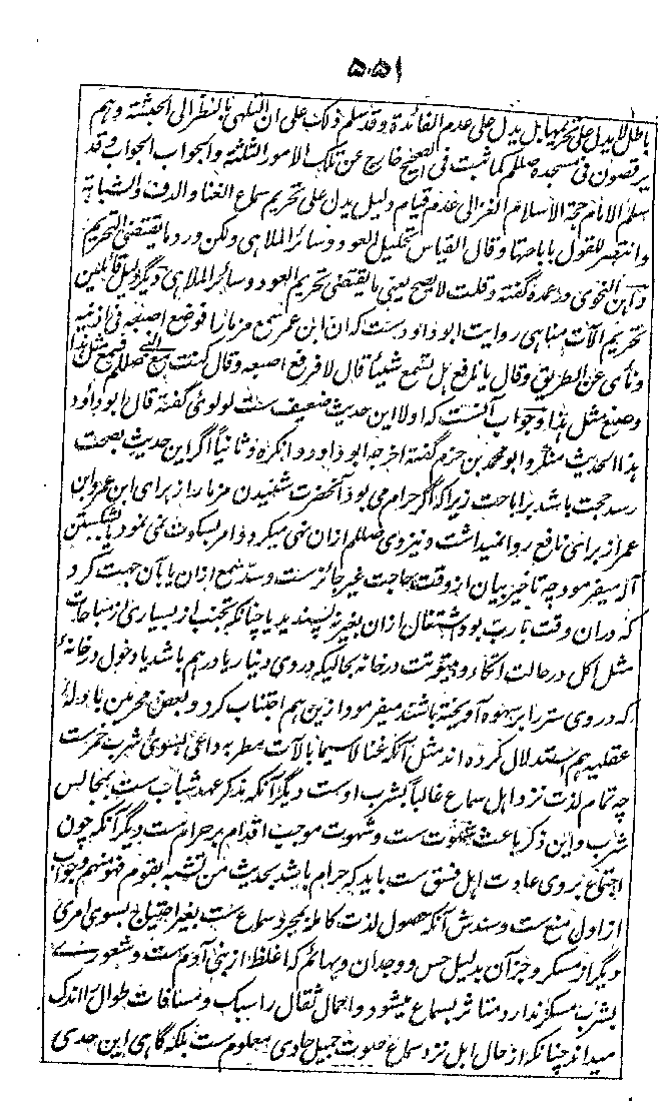 ۵۵۱
باطل لا یدل علی تحریمها بل یدل علی عدم الفائدة وقد سلم ذلک علی ان التلهی بالنظر الی الحبشة وهم
یرقصون فی مسجده صللم کما ثبت فی الصحیح خارج عن تلک الامور الثلثة والجواب الجواب وقد
سلم الامام حجة الاسلام الغزالی عدم قیام دلیل یدل علی تحریم سماع الغنا والدف والشبابة
وانتصر للقول باباحتها وقال القیاس تحلیل العود وسائر الملاهی ولکن ورد ما یقتضی التحریم
وابن النحوی در عمده گفته وقلت لا یصح یعنی ما یقتضی تحریم العود وسائر الملاهی دیگر دلیل قائلین
تحریم آلات مناهی روایت ابو داود ست که ان ابن عمر سمع مزمارا فوضع اصبعه فی اذنیه
ونأی عن الطریق وقال یا نافع هل تسمع شیئا قال لا فرفع اصبعه وقال کنت مع النبی صللم فسمع مثل هذا
وصنع مثل هذا وجواب آنست که اولا این حدیث ضعیف ست لولوئی گفته قال ابو داود
هذا الحدیث منکر وابو محمد بن حزم گفته اخرجه ابو داود وانکره وثانیا اگر این حدیث بصحت
رسد حجت باشد بر اباحت زیرا که اگر حرام می بود آنحضرت شنیدن مزمار را از برای ابن عمر وابن
عمر از برای نافع روا نمیداشت ونیز وی صللم ازان نهی میکرد و امر بسکوت می نمود یا بشکستن
آله میفرمود چه تاخیر بیان از وقت حاجت غیر جائز ست وسد سمع ازان یا بآن جهت کرد
که دران وقت با رب بود اشتغال ازان بغیر نه پسندید یا چنانکه تجنب از بسیاری از مباحات
مثل اکل در حالت اتکا و بیتوتت در خانه بحالیکه در وی دینار یا درهم باشد یا دخول در خانهٔ
که در وی ستر را بر سهوه آویخته باشند میفرمود ازین هم اجتناب کرد و بعض محرمین با دلهٔ
عقلیه هم استدلال کرده اند مثل آنکه غنا لا سیما بالآت مطربه داعی بسوی شرب خمر ست
چه تمام لذت نزد اهل سماع غالبا بشرب اوست دیگر آنکه مذکر عهد شباب ست بمجالس
شرب و این ذکر باعث شهوت ست وشهوت موجب اقدام بر حرام ست دیگر آنکه چون
اجتماع بر وی عادت اهل فسق ست باید که حرام باشد بحدیث من تشبه بقوم فهو منهم وجواب
از اول منع ست وسندش آنکه حصول لذت کامله بمجرد سماع ست بغیر احتیاج بسوی امری
دیگر از مسکر و جز آن بدلیل حس و وجدان وبهائم که اغلظ از بنی آدم ست و شعوری
بشرب مسکر ندارد متاثر بسماع میشود و احمال ثقال را سبک و مسافات طوال را اندک
میداند چنانکه از حال ابل نزد سماع صوت جمیل حادی معلوم ست بلکه گاهی این حدی